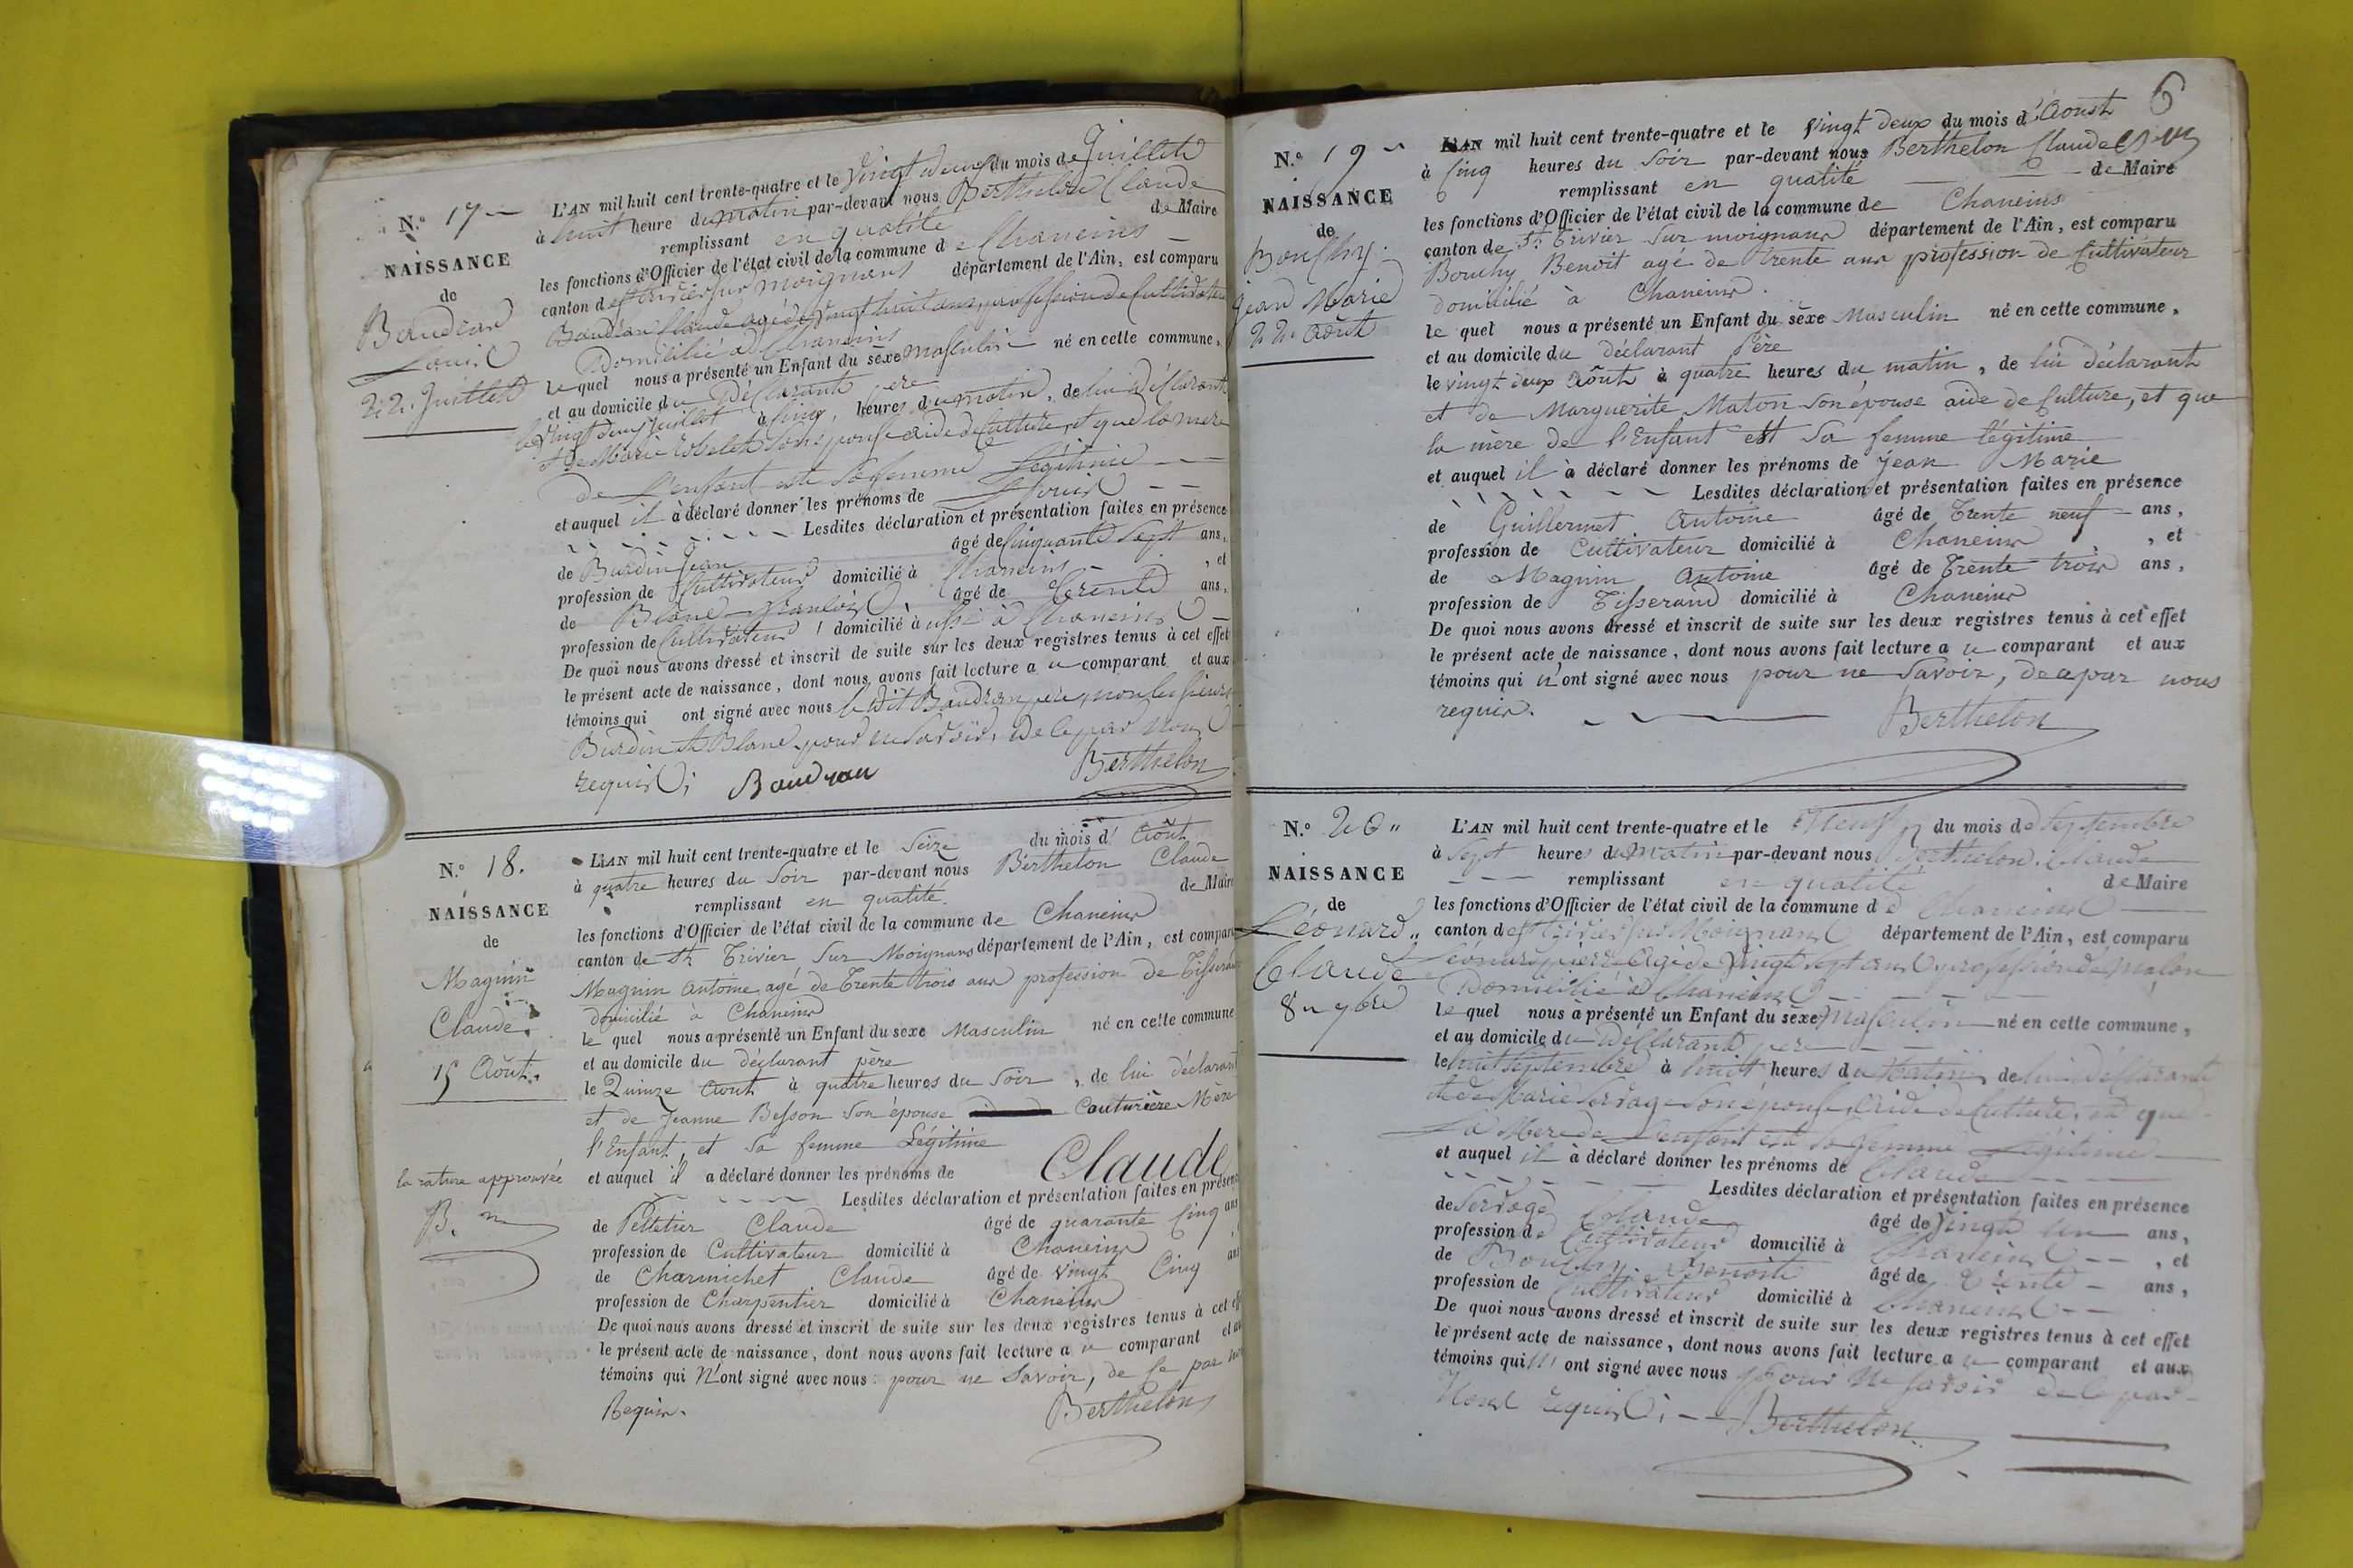 N.° 17
NAISSANCE
de
Baudran
Louis
22 Juillet
L'AN mil huit cent trente-quatre et le Vingt deux du mois de Juillet
à huit heure du matin par-devant nous Berthelon Claude
remplissant en qualité de Maire
les fonctions d'Officier de l'état civil de la commune de Chaneins
canton de St Trivier sur Moignans département de l'Ain, est comparu
Baudran Claude agé de Vingt huit ans, profession de Cultivateur
Domicilié à Chaneins
le quel nous a présenté un Enfant du sèxe Masculin né en cette commune,
et au domicile du Déclarant père
le Vingt deux Juillet à cinq heures du matin, de lui Déclarant
et de Marie son épouse aide de Culture, et que la mere
de l'enfant est sa femme Légitime
et auquel il à déclaré donner les prénoms de Louis
Lesdites déclaration et présentation faites en présence
de Burdin Jean âgé de Cinquante Sept ans,
profession de Cultivateur domicilié à Chaneins, et
de Blanc François âgé de Trente ans,
profession de Cultivateur domicilié à ussi à Chaneins
De quoi nous avons dressé et inscrit de suite sur les deux registres tenus à cet effet
le présent acte de naissance, dont nous avons fait lecture a u comparant et aux
témoins qui ont signé avec nous le dit Baudran père, non les sieurs
Burdin et Blanc pour ne savoir, de ce par nous
requis;
Baudran
Berthelon
N.° 18.
NAISSANCE
de
Maguin
Claude.
15 Août.
la rature approuvée
B. n
L'AN mil huit cent trente-quatre et le Seize du mois d' Août
à quatre heures du Soir par-devant nous Berthelon Claude
remplissant en qualité de Maire
les fonctions d'Officier de l'état civil de la commune de Chaneins
canton de St Trivier Sur Moignans département de l'Ain, est comparu
Maguin Antoine, agé de Trente trois ans profession de Tisserand
domicilié à Chaneins
le quel nous a présenté un Enfant du sexe Masculin né en cette commune
et au domicile du déclarant père
le Quinze Aout à quatre heures du Soir, de lui déclarant
et de Jeanne Besson son épouse Couturière Mère
l'Enfant, et sa femme Légitime
et auquel il a déclaré donner les prénoms de Claude
Lesdites déclaration et présentation faites en présence
de Pelletier Claude âgé de quarante Cinq ans
profession de Cultivateur domicilié à Chaneins
de Charmichet Claude âgé de Vingt Cinq ans
profession de Charpentier domicilié à Chaneins
De quoi nous avons dressé et inscrit de suite sur les deux registres tenus à cet eff
le présent acte de naissance, dont nous avons fait lecture a u comparant et au
témoins qui N'ont signé avec nous pour ne Savoir, de ce par nous
Requis.
Berthelon
6
N.° 19
NAISSANCE
de
Bouchy.
Jean Marie
22 Août
L'AN mil huit cent trente-quatre et le Vingt deux du mois d' Aoust
à Cinq heures du Soir par-devant nous Berthelon Claude
remplissant en qualité de Maire
les fonctions d'Officier de l'état civil de la commune de Chaneins
canton de St. Trivier Sur moignans département de l'Ain, est comparu
Bouchy Benoit agé de trente ans profession de Cultivateur
domicilié à Chaneins.
le quel nous a présenté un Enfant du sèxe Masculin né en cette commune,
et au domicile du déclarant Père
le vingt deux Août à quatre heures du matin, de lui déclarant
et de Marguerite Maton son épouse aide de Culture, et que
la mère de l'Enfant est sa femme légitime
et auquel il à déclaré donner les prénoms de Jean Marie
Lesdites déclaration et présentation faites en présence
de Guillermet Antoine âgé de Trente neuf ans,
profession de Cultivateur domicilié à Chaneins, et
de Maguin Antoine âgé de Trente trois ans,
profession de Tisserand domicilié à Chaneins
De quoi nous avons dressé et inscrit de suite sur les deux registres tenus à cet effet
le présent acte de naissance, dont nous avons fait lecture a u comparant et aux
témoins qui n'ont signé avec nous pour ne Savoir, de ce par nous
requis.
Berthelon
N.° 20
NAISSANCE
de
Léonard
Claude
8 7bre
L'AN mil huit cent trente-quatre et le Neuf du mois de Septembre
à Sept heures du Matin par-devant nous Berthelon Claude
remplissant en qualité de Maire
les fonctions d'Officier de l'état civil de la commune de Chaneins
canton de St Trivier sur Moignans département de l'Ain, est comparu
Léonard Pierre Agé de Vingt Sept ans profession de Maçon
Domicilié à Chaneins
le quel nous à présenté un Enfant du sèxe Masculin né en cette commune,
et au domicile du Déclarant père
le huit Septembre à huit heures du Matin, de lui Déclarant
et de Marie Servage son épouse Aide de Culture, et que
La Mere de l'enfant est sa femme Légitime
et auquel il à déclaré donner les prénoms de Claude
Lesdites déclaration et présentation faites en présence
de Servage Claude âgé de Vingt Un ans,
profession de Cultivateur domicilié à Chaneins, et
de Bouchy Benoit âgé de Trente ans,
profession de Cultivateur domicilié à Chaneins
De quoi nous avons dressé et inscrit de suite sur les deux registres tenus à cet effet
le présent acte de naissance, dont nous avons fait lecture a u comparant et aux
témoins qui N'ont signé avec nous pour Ne savoir de ce par
Nous requis;
Berthelon